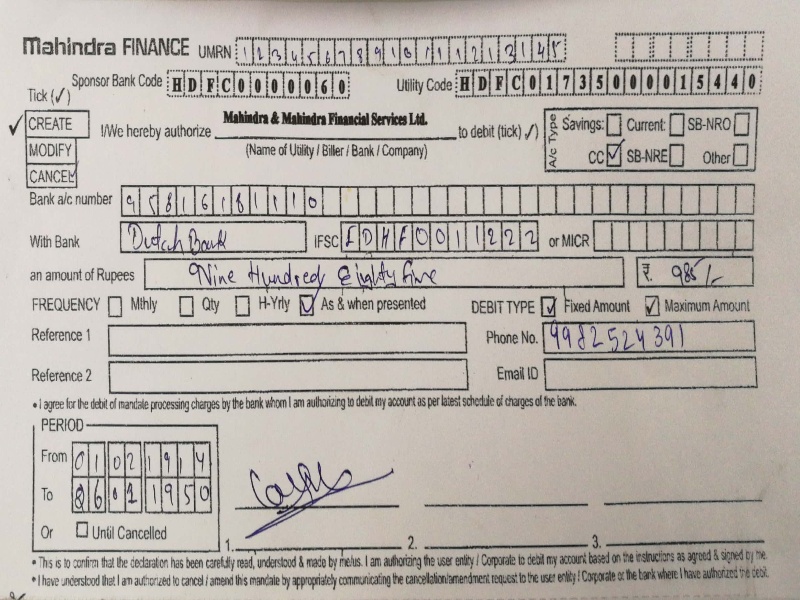 Mahindra FINANCE UMRN 123456789101112131415
Sponsor Bank Code HDFC0000060 Utility Code HDFC01735000015440
Tick (✓)
✓ CREATE
MODIFY
CANCEL
I/We hereby authorize Mahindra & Mahindra Financial Services Ltd. to debit (tick) ✓)
(Name of Utility / Biller / Bank / Company)
A/c Type Savings: Current: SB-NRO
CC ✓ SB-NRE Other
Bank a/c number
With Bank Dutch Bank IFSC or MICR
an amount of Rupees Nine Hundred Eighty Five ₹ 985/-
FREQUENCY Mthly Qty H-Yrly ✓ As & when presented DEBIT TYPE ✓ Fixed Amount ✓ Maximum Amount
Reference 1 Phone No. 9982524391
Reference 2 Email ID
• I agree for the debit of mandate processing charges by the bank whom I am authorizing to debit my account as per latest schedule of charges of the bank.
PERIOD
From 01021914
To 1950
Or Until Cancelled
1. 2. 3.
• This is to confirm that the declaration has been carefully read, understood & made by me/us. I am authorizing the user entity / Corporate to debit my account based on the instructions as agreed & signed by me.
• I have understood that I am authorized to cancel / amend this mandate by appropriately communicating the cancellation/amendment request to the user entity / Corporate or the bank where I have authorized the debit.